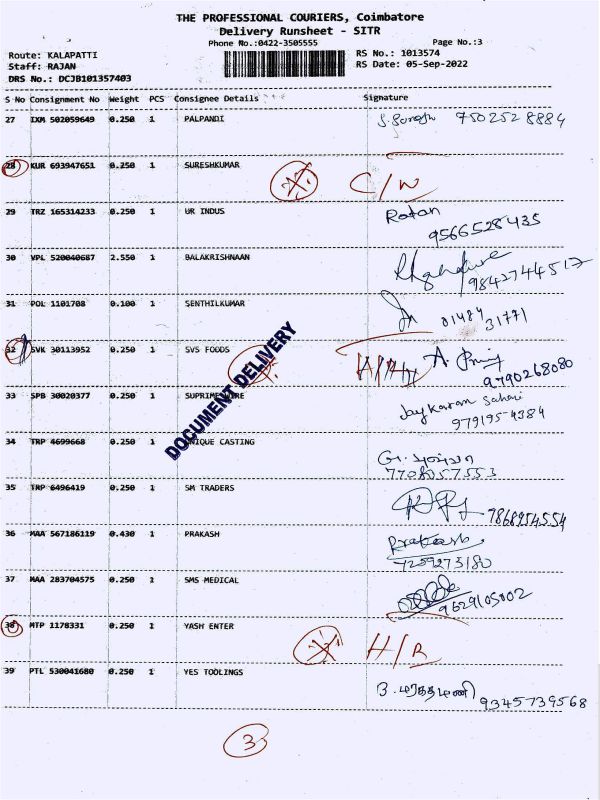 THE PROFESSIONAL COURIERS, Coimbatore
Delivery Runsheet - SITR
Phone No.:0422-3505555 Page No.:3
Route: KALAPATTI RS No.: 1013574
Staff: RAJAN RS Date: 05-Sep-2022
DRS No.: DCJB101357403
S No Consignment No Weight PCS Consignee Details Signature
27 IXM 502059649 0.250 1 PALPANDI S. Suresh 7502528884
28 KUR 693947651 0.250 1 SURESHKUMAR C/W
29 TRZ 165314233 0.250 1 UR INDUS Ratan
9566528435
30 VPL 520040687 2.550 1 BALAKRISHNAAN 9842744517
31 POL 1101708 0.100 1 SENTHILKUMAR 01484
31771
32 SVK 30113952 0.250 1 SVS FOODS A.
9790268080
33 SPB 30020377 0.250 1 Jaykaran Sahari
9791954384
DOCUMENT DELIVERY
34 TRP 4699668 0.250 1 UNIQUE CASTING G.
7708057553
35 TRP 6496419 0.250 1 SM TRADERS 7868954554
36 MAA 567186119 0.430 1 PRAKASH Prakash
7259273180
37 MAA 283704575 0.250 1 SMS MEDICAL 9629105002
38 MTP 1178331 0.250 1 YASH ENTER H/R
39 PTL 530041680 0.250 1 YES TOOLINGS B.
9345739568
3